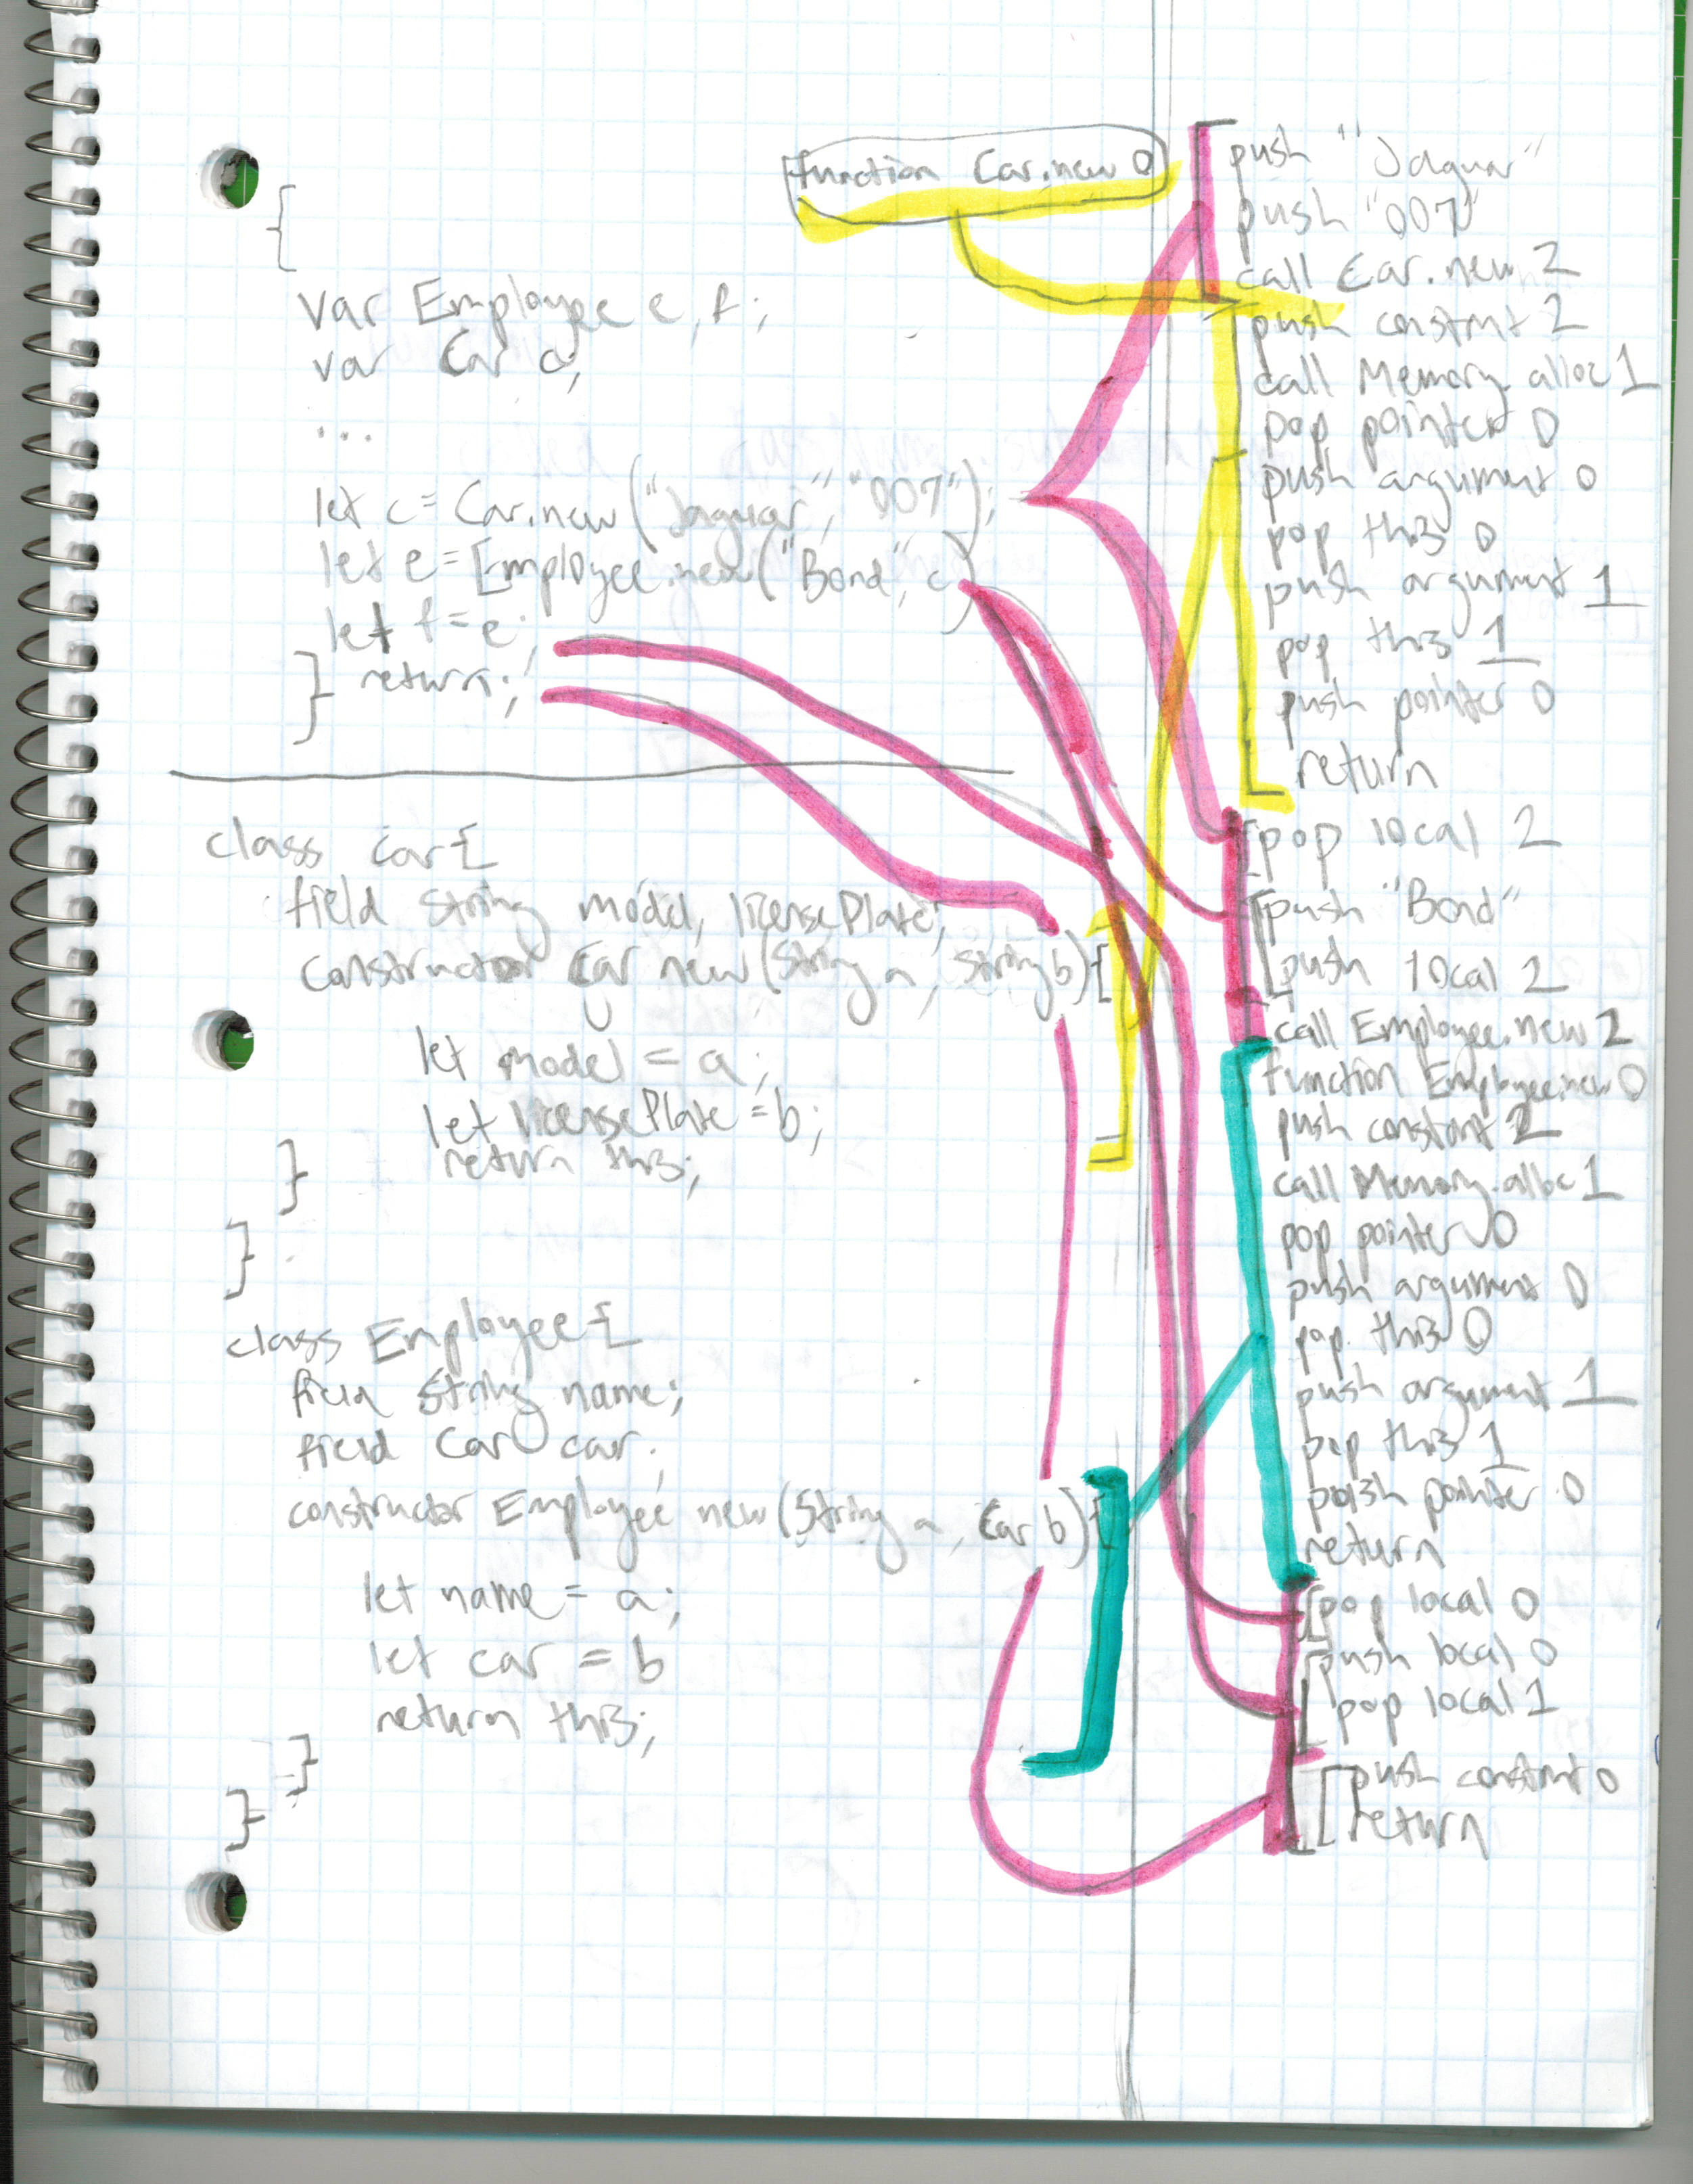 {
var Employee e, f;
var Car c;
...
let c = Car.new("Jaguar", "007");
let e = Employee.new("Bond", c)
let f = e;
} return;
class Car {
field String model, licensePlate;
constructor Car new (String a, String b) {
let model = a;
let licensePlate = b;
return this;
}
}
class Employee {
field String name;
field Car car;
constructor Employee new (String a, Car b) {
let name = a;
let car = b
return this;
}
}
function Car.new 0
push "Jaguar"
push "007"
call Car.new 2
push constant 2
call Memory.alloc 1
pop pointer 0
push argument 0
pop this 0
push argument 1
pop this 1
push pointer 0
return
pop local 2
push "Bond"
push local 2
call Employee.new 2
function Employee.new 0
push constant 2
call Memory.alloc 1
pop pointer 0
push argument 0
pop this 0
push argument 1
pop this 1
push pointer 0
return
pop local 0
push local 0
pop local 1
push constant 0
return